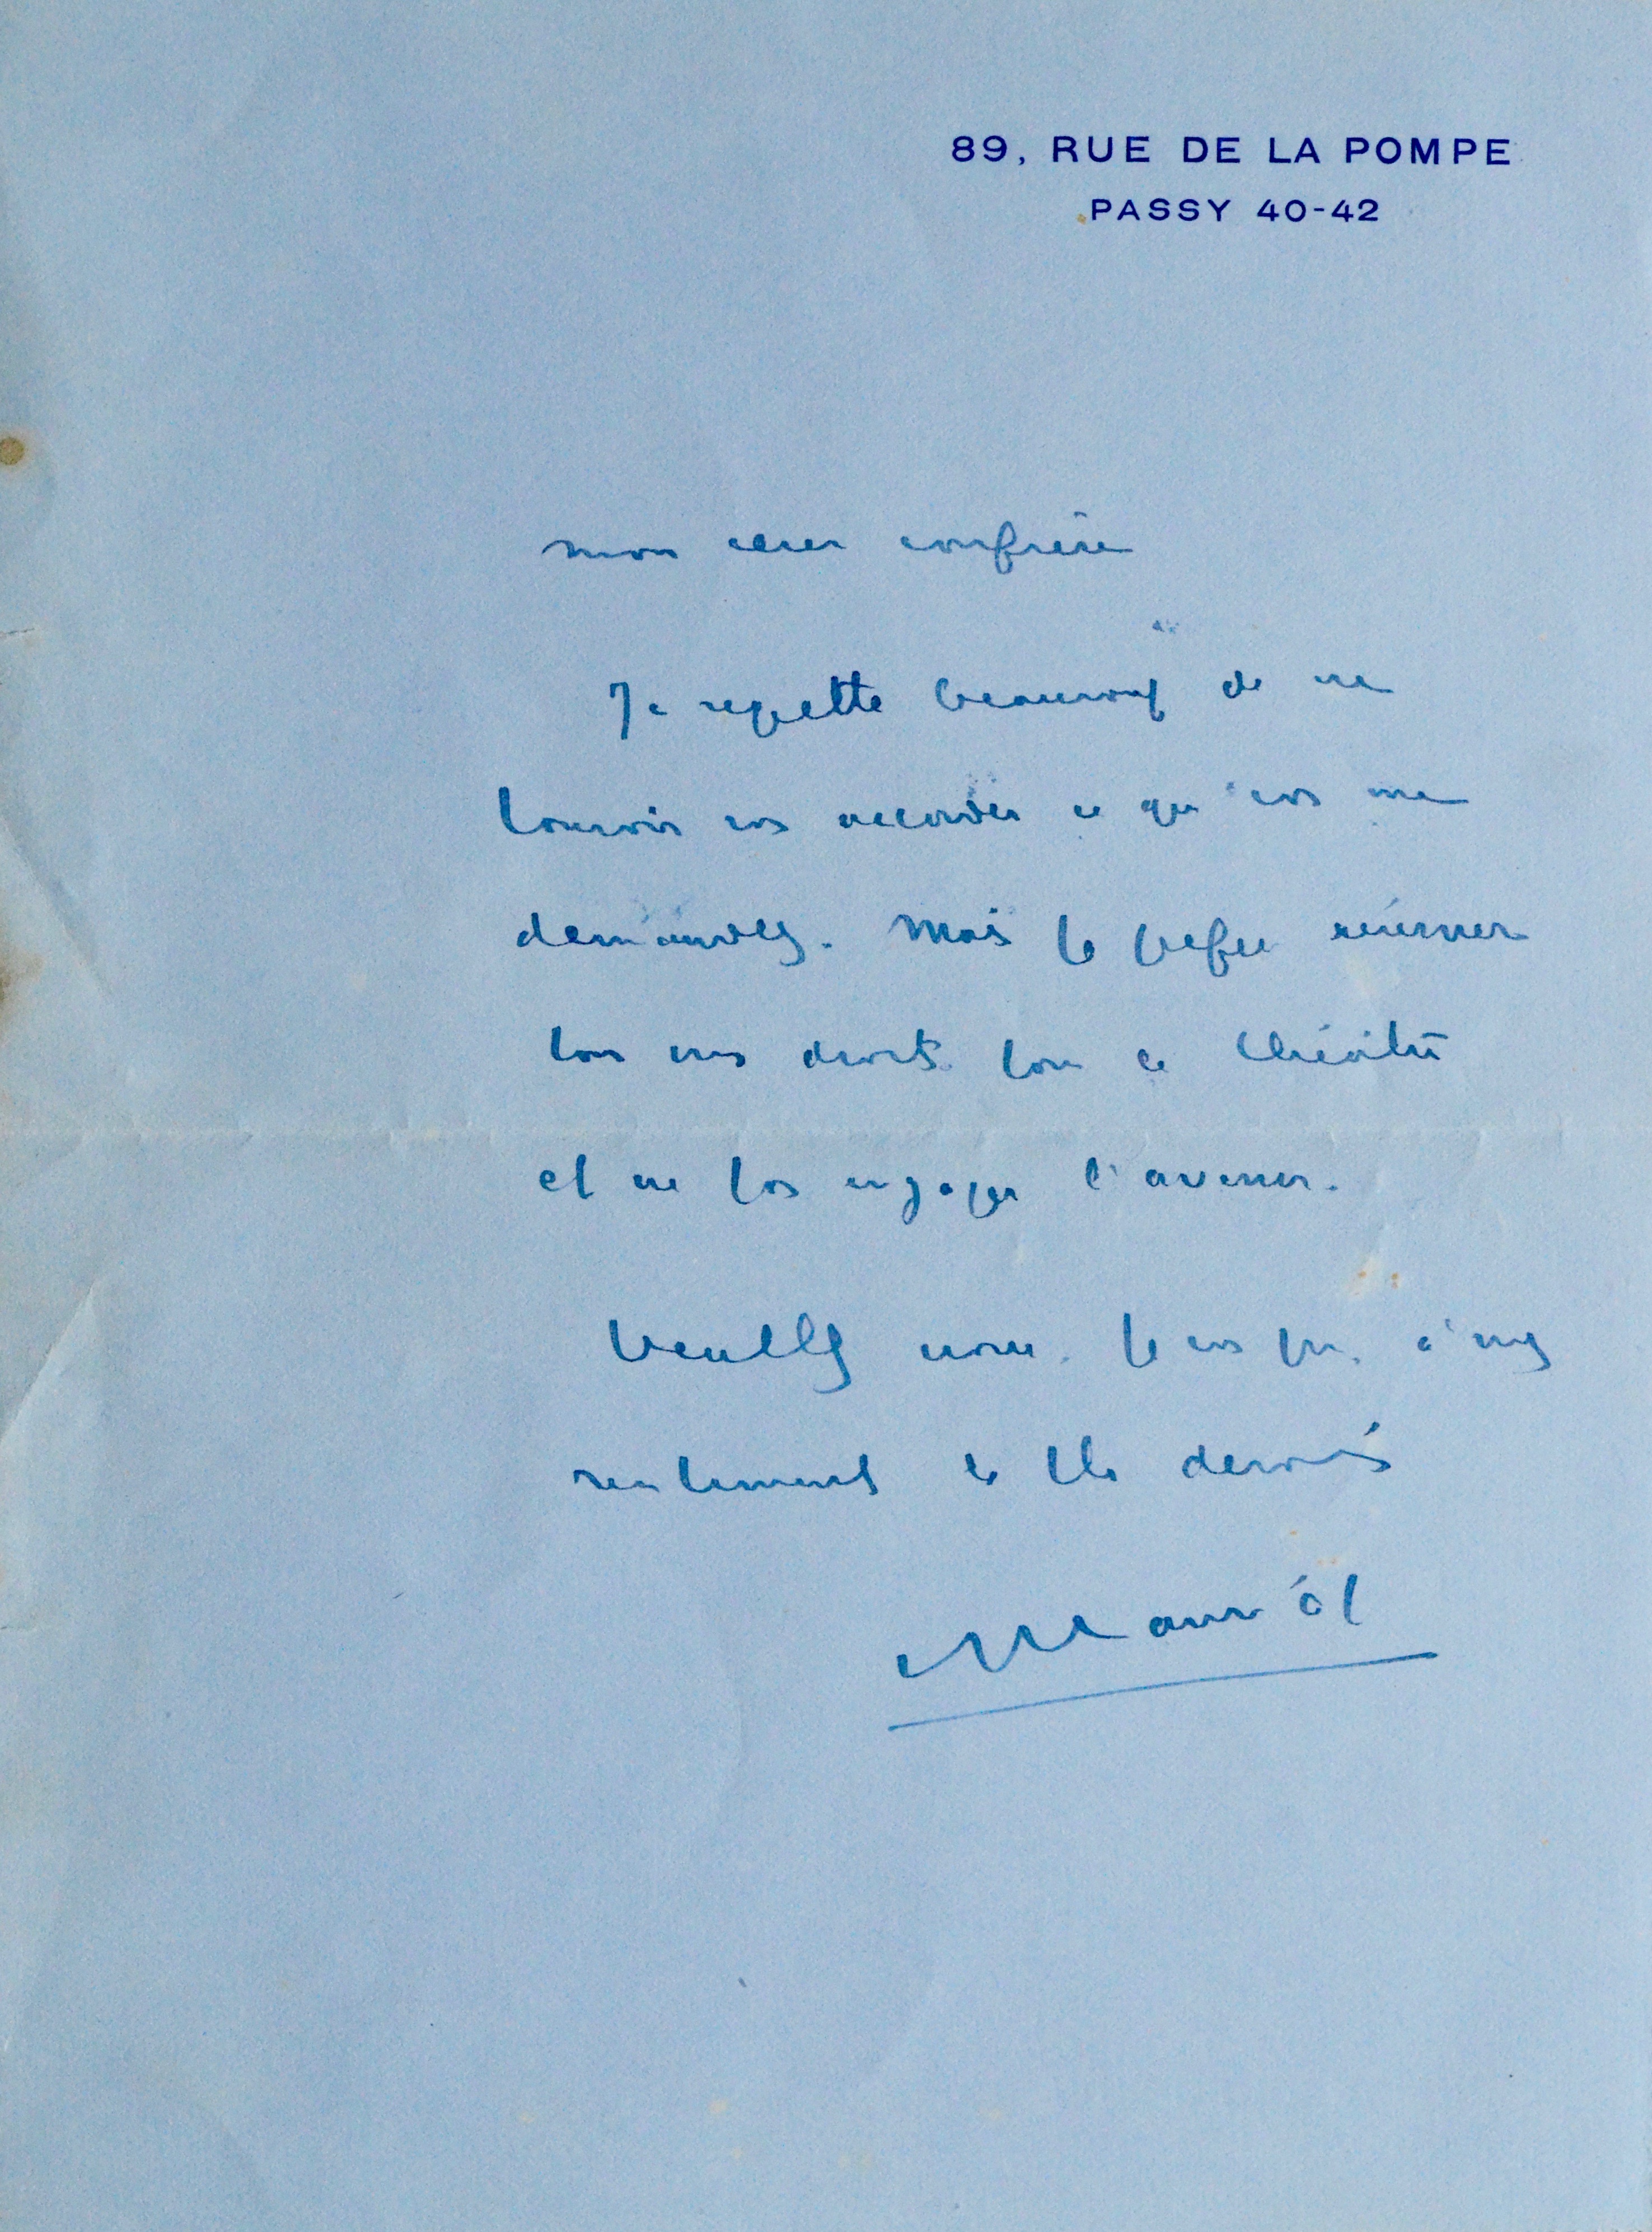 89, RUE DE LA POMPE
PASSY 40-42
mon cher confrère
Je regrette beaucoup de ne
pouvoir vous accorder ce que vous me
demandez. Mais je préfère réserver
tous mes droits pour ce théâtre
et ne pas engager l'avenir.
Veuillez croire, je vous prie, à mes
sentiments les plus dévoués